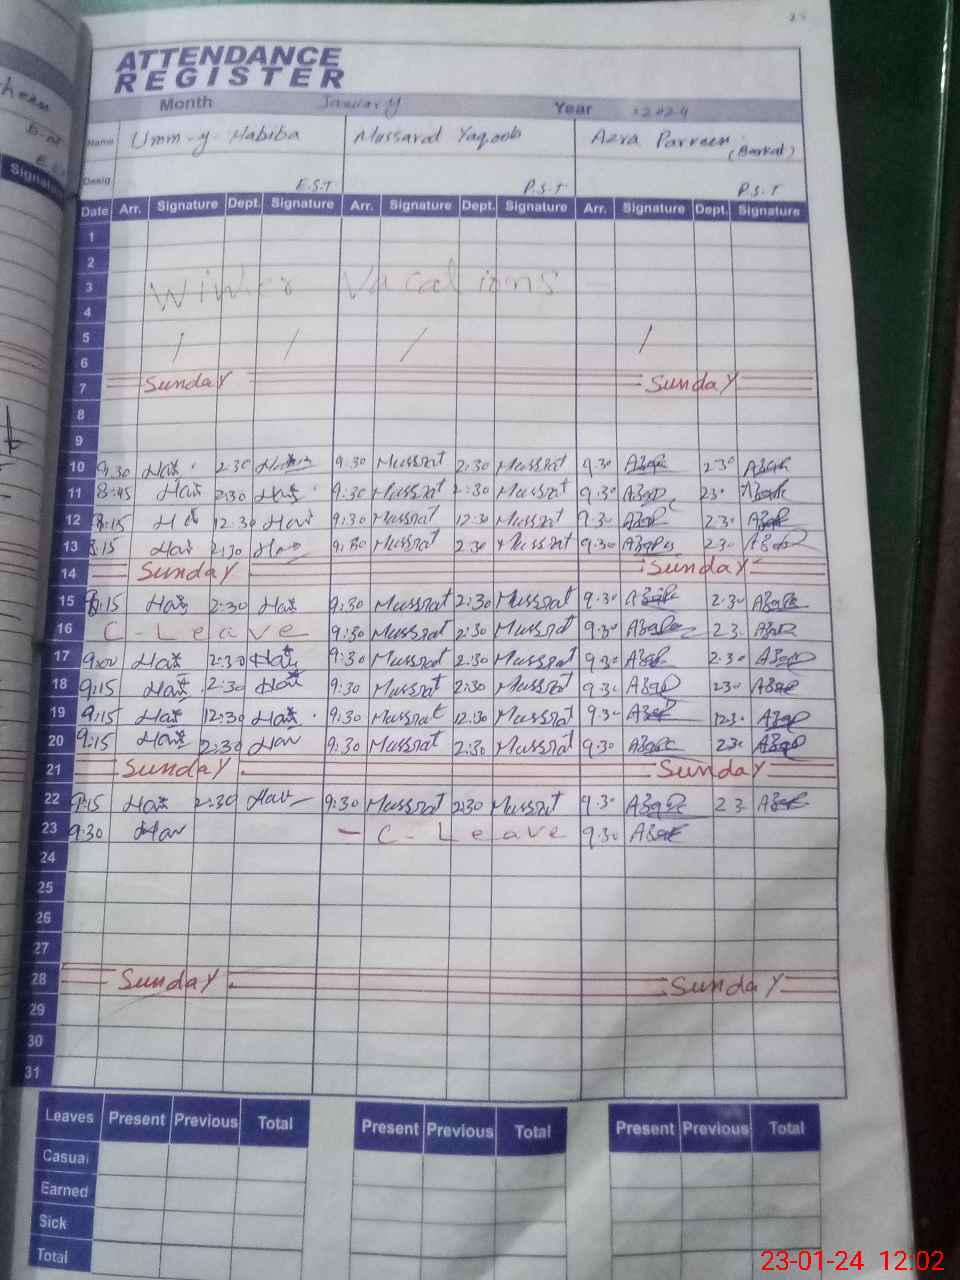 ATTENDANCE
REGISTER
Month January Year 2024
Name Umm-y-Habiba Mussarat Yaqoob Azra Parveen (Barkat)
Desig E.S.T P.S.T P.S.T
Date Arr. Signature Dept. Signature Arr. Signature Dept. Signature Arr. Signature Dept. Signature
1
2
3 Winter Vacations
4
5
6
7 Sunday Sunday
8
9
10 9.30 2:30 9.30 Mussrat 2:30 Mussrat 9.30 2.30
11 8:45 2:30 9:30 Mussrat 2:30 Mussrat 9.30 2.30
12 8:15 12:30 9:30 Mussrat 12:30 Mussrat 9.30 2.30
13 8:15 2:30 9:30 Mussrat 2:30 Mussrat 9:30 2.30
14 Sunday Sunday
15 9:15 2:30 9:30 Mussrat 2:30 Mussrat 9.30 2.30
16 C-Leave 9:30 Mussrat 2:30 Mussrat 9.30 2.30
17 9:00 2:30 9:30 Mussrat 2:30 Mussrat 9.30 2.30
18 9:15 2:30 9:30 Mussrat 2:30 Mussrat 9.30 2.30
19 9:15 12:30 9:30 Mussrat 12:30 Mussrat 9.30 12.30
20 9:15 2:30 9:30 Mussrat 2:30 Mussrat 9.30 2.30
21 Sunday Sunday
22 9:15 2:30 9:30 Mussrat 2:30 Mussrat 9.30 2.30
23 9:30 - C-Leave 9.30
24
25
26
27
28 Sunday Sunday
29
30
31
Leaves Present Previous Total Present Previous Total Present Previous Total
Casual
Earned
Sick
Total
23-01-24 12:02